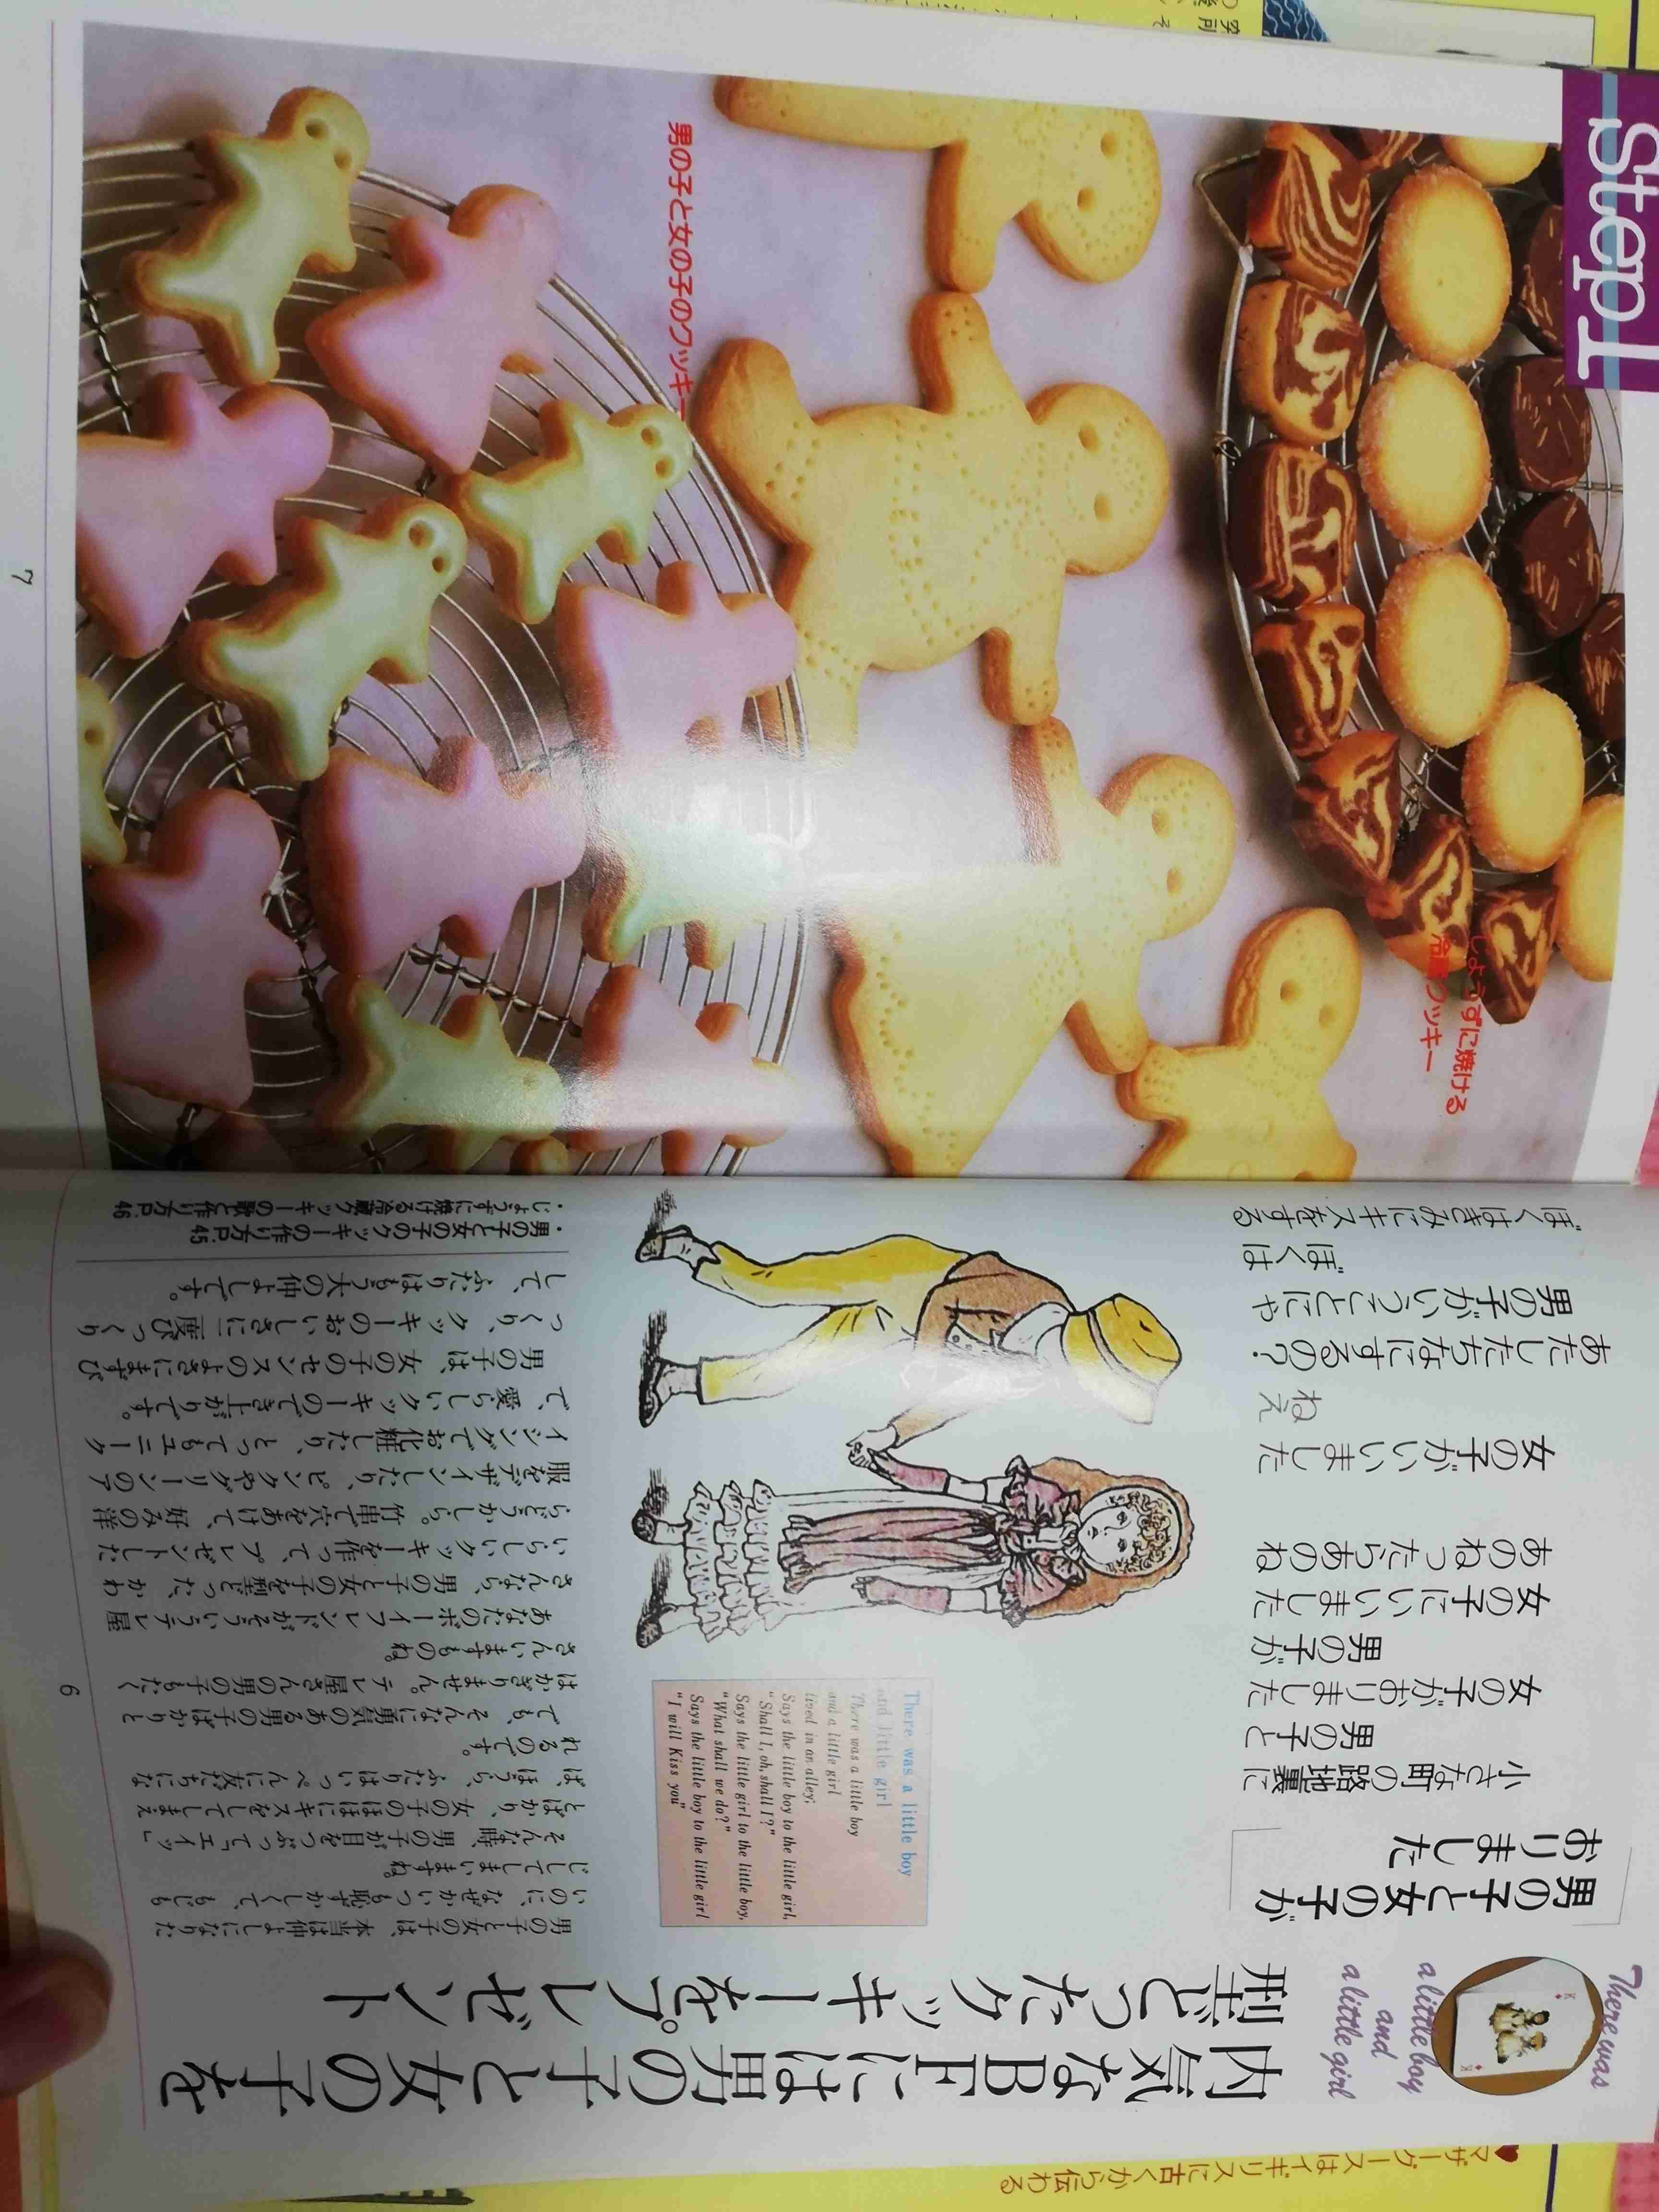 Step1
男の子と女の子のクッキー
じょうずに焼ける
クッキー
There was
a little boy
and
a little girl
内気なBFには男の子と女の子を
型どったクッキーをプレゼント
男の子と女の子が
おりました
小さな町の路地裏に
男の子と
女の子がおりました
男の子が
女の子にいいました
あのねったらあのね
女の子がいいました
ねえ
あたしたちなにするの?
男の子がいうことにゃ
ぼくは
ぼくはきみにキスをする
There was a little boy
and little girl
There was a little boy
and a little girl
lived in an alley;
Says the little boy to the little girl,
"Shall I, oh, shall I?"
Says the little girl to the little boy,
"What shall we do?"
Says the little boy to the little girl
"I will Kiss you"
男の子と女の子は、本当は仲よしになりた
いのに、なぜかいつも恥ずかしくて、もじも
じしてしまいますね。
そんな時、男の子が目をつぶって「エイッ」
とばかり、女の子のほほにキスをしてしまえ
ば、ほうら、ふたりはいっぺんに友だちにな
れるのです。
でも、そんなに勇気のある男の子ばかりと
はかぎりません。テレ屋さんの男の子もたく
さんいますものね。
あなたのボーイフレンドがそういうテレ屋
さんなら、男の子と女の子を型どった、かわ
いらしいクッキーを作って、プレゼントした
らどうかしら。竹串で穴をあけて、好みの洋
服をデザインしたり、ピンクやグリーンのア
イシングでお化粧したり、とってもユニーク
で、愛らしいクッキーのでき上がりです。
男の子は、女の子のセンスのよさにまずび
っくり、クッキーのおいしさに二度びっくり
して、ふたりはもう大の仲よしです。
・男の子と女の子のクッキーの作り方P.45
・じょうずに焼ける冷蔵クッキーの歌と作り方P.46
6
7
マザーグースはイギリスに古くから伝わる